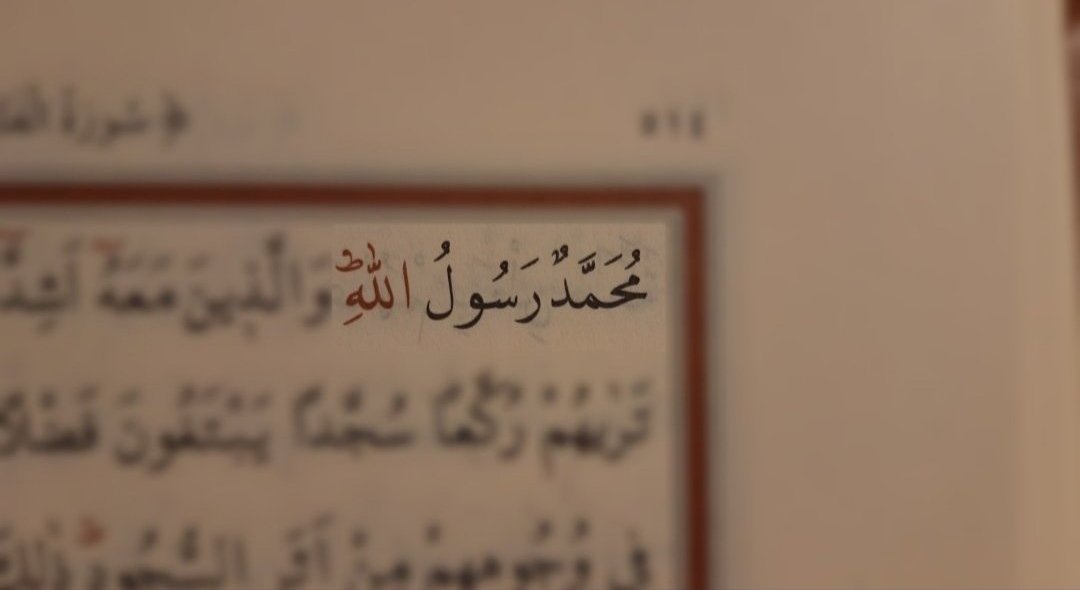 ٥١٤ ﴿سُورَةُ الْفَتْحِ
مُحَمَّدٌ رَسُولُ اللّٰهِؕ وَالَّذ۪ينَ مَعَهُٓ اَشِدَّٓا
تَرٰيهُمْ رُكَّعاً سُجَّداً يَبْتَغُونَ فَضْلاً
ف۪ي وُجُوهِهِمْ مِنْ اَثَرِ السُّجُودِؕ ذٰلِكَ